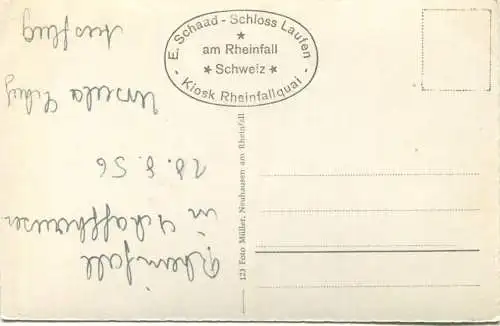 E. Schaad - Schloss Laufen
am Rheinfall
Schweiz
Kiosk Rheinfallquai
123 Foto Müller, Neuhausen am Rheinfall
Rheinfall
in Schaffhausen
28. 8. 56
Ursula
Ausflug